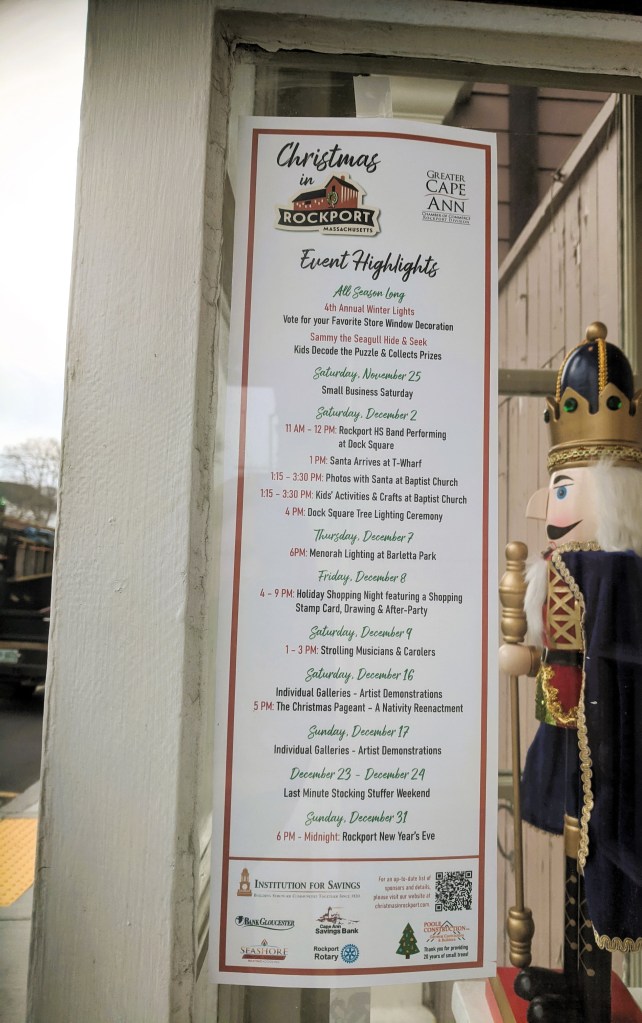 Christmas
in
ROCKPORT
MASSACHUSETTS
GREATER
CAPE
ANN
CHAMBER OF COMMERCE
ROCKPORT DIVISION
Event Highlights
All Season Long
4th Annual Winter Lights
Vote for your Favorite Store Window Decoration
Sammy the Seagull Hide & Seek
Kids Decode the Puzzle & Collects Prizes
Saturday, November 25
Small Business Saturday
Saturday, December 2
11 AM – 12 PM: Rockport HS Band Performing
at Dock Square
1 PM: Santa Arrives at T-Wharf
1:15 – 3:30 PM: Photos with Santa at Baptist Church
1:15 – 3:30 PM: Kids' Activities & Crafts at Baptist Church
4 PM: Dock Square Tree Lighting Ceremony
Thursday, December 7
6PM: Menorah Lighting at Barletta Park
Friday, December 8
4 – 9 PM: Holiday Shopping Night featuring a Shopping
Stamp Card, Drawing & After-Party
Saturday, December 9
1 – 3 PM: Strolling Musicians & Carolers
Saturday, December 16
Individual Galleries – Artist Demonstrations
5 PM: The Christmas Pageant – A Nativity Reenactment
Sunday, December 17
Individual Galleries – Artist Demonstrations
December 23 – December 24
Last Minute Stocking Stuffer Weekend
Sunday, December 31
6 PM – Midnight: Rockport New Year's Eve
INSTITUTION FOR SAVINGS
For an up-to-date list of
sponsors and details,
please visit our website at
christmasinrockport.com
BANKGLOUCESTER
Cape Ann
Savings Bank
POOLE
CONSTRUCTION
SEASHORE
Rockport
Rotary
Thank you for providing
20 years of small trees!